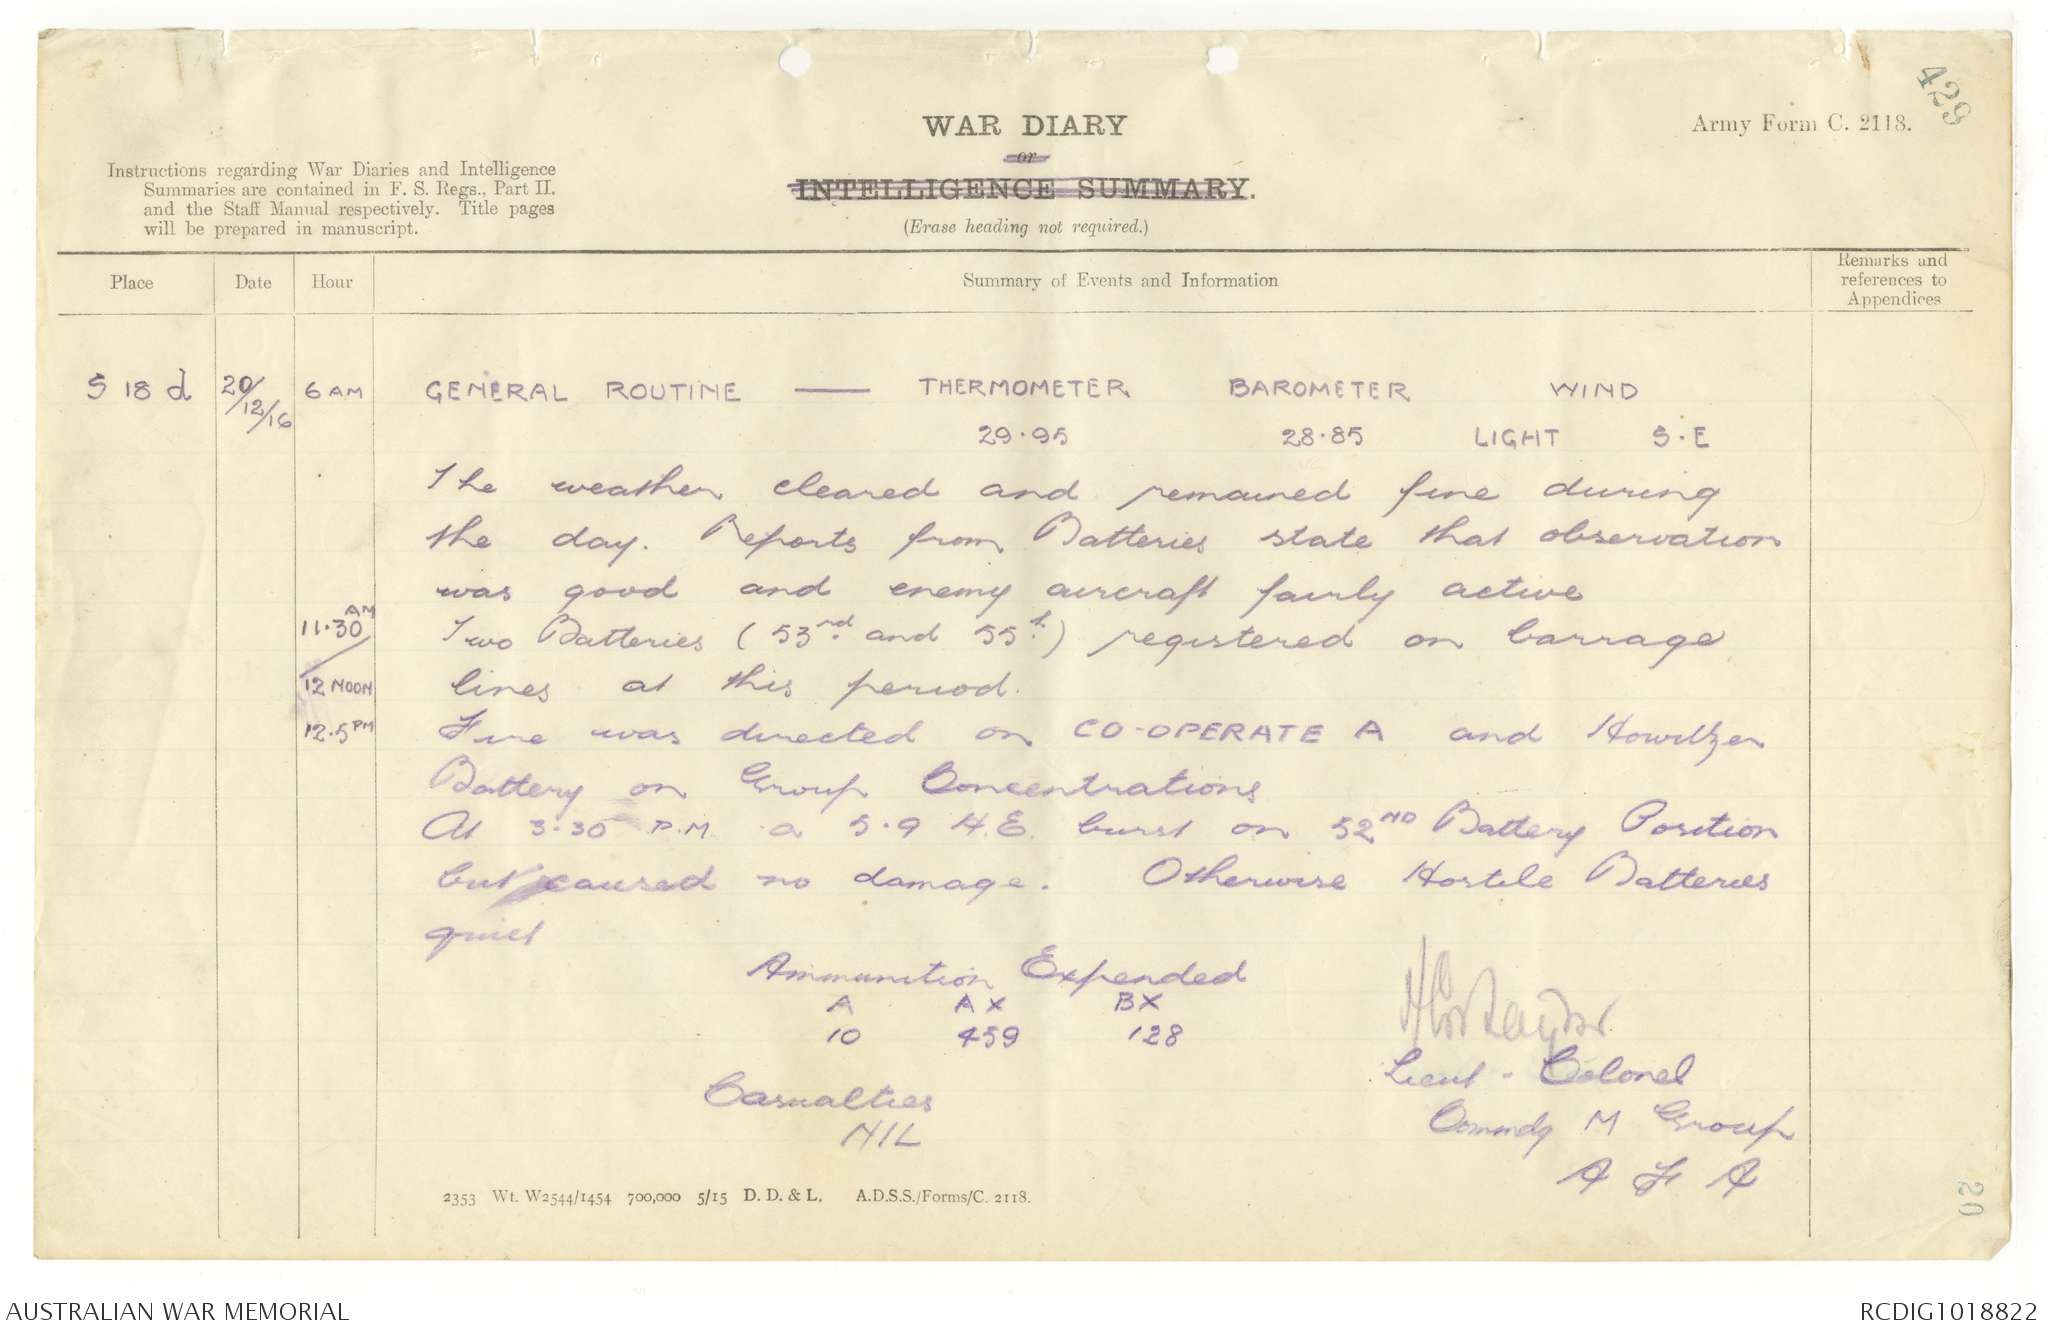 429
WAR DIARY
Army Form C. 2118.
or
INTELLIGENCE SUMMARY.
(Erase heading not required.)
Instructions regarding War Diaries and Intelligence
Summaries are contained in F. S. Regs., Part II.
and the Staff Manual respectively. Title pages
will be prepared in manuscript.
Place Date Hour Summary of Events and Information Remarks and references to Appendices
S 18 d 20/12/16 6 AM GENERAL ROUTINE — THERMOMETER BAROMETER WIND
29.95 28.85 LIGHT S.E
The weather cleared and remained fine during
the day. Reports from Batteries state that observation
was good and enemy aircraft fairly active
11.30 AM / Two Batteries (53rd. and 55th.) registered on barrage
12 NOON lines at this period.
12.5 PM Fire was directed on CO-OPERATE A and Howitzer
Battery on Group Concentrations
At 3.30 P.M. a 5.9 H.E. burst on 52ND Battery Position
but caused no damage. Otherwise Hostile Batteries
quiet
Ammunition Expended
A AX BX
10 459 128
Lieut-Colonel
Casualties
NIL
Commdg M Group
A F A
2353 Wt. W2544/1454 700,000 5/15 D. D. & L. A.D.S.S./Forms/C. 2118.
20
AUSTRALIAN WAR MEMORIAL RCDIG1018822